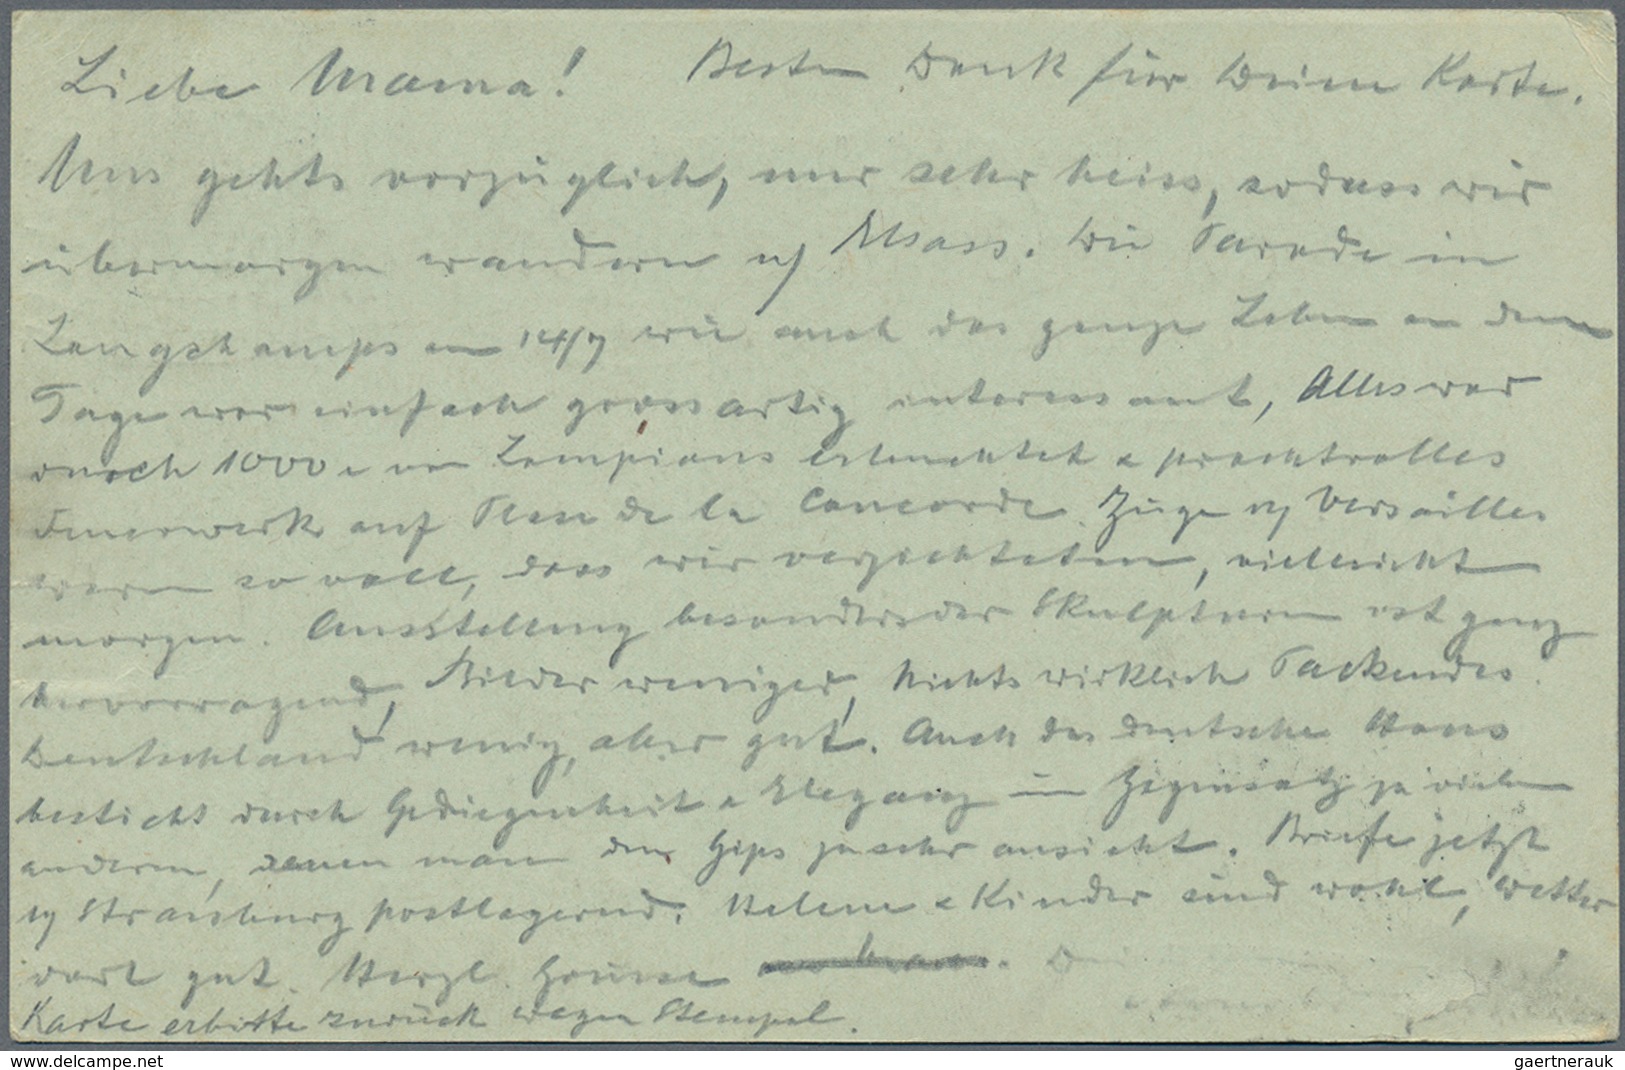 Liebe Mama! Besten Dank für Deine Karte.
Uns gehts vorzüglich, nur sehr heiss, sodass wir
übermorgen wandern n/ Elsass. Die Parade in
Longchamps am 14/7 wie auch das ganze Leben an dem
Tage war einfach grossartig interessant, Alles war
durch 1000e von Lampions erleuchtet & prachtvolles
Feuerwerk auf Place de la Concorde. Züge n/ Versailles
waren so voll, dass wir verzichteten, vielleicht
morgen. Ausstellung besonders der Skulpturen ist ganz
hervorragend, Bilder weniger, Nichts wirklich Packendes.
Deutschland wenig, aber gut. Auch das deutsche Haus
besticht durch Gediegenheit & Eleganz im Gegensatz zu vielen
anderen, denen man den Gips zusehr ansieht. Briefe jetzt
n/ Strassburg postlagernd. Helene & Kinder sind wohl, Wetter
dort gut. Herzl. Grüsse
Karte erbitte zurück wegen Stempel.
delcampe.net
gaertnerauk